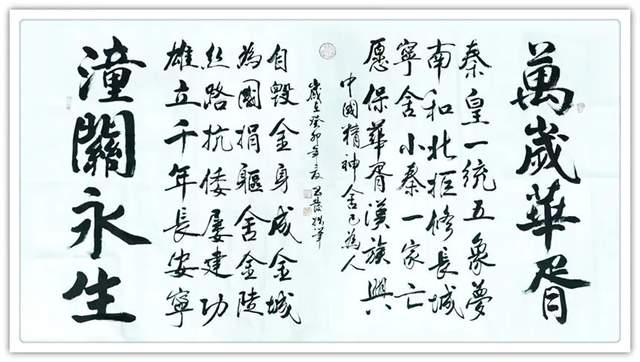 萬歲華胥
秦皇一統五象夢
南和北拒修長城
寧舍小秦一家亡
愿保華胥漢族興
中國精神舍己為人
歲在癸卯年夏
自毀金身成金城
為國捐軀舍金陵
絲路抗倭屢建功
雄立千年長安寧
潼關永生